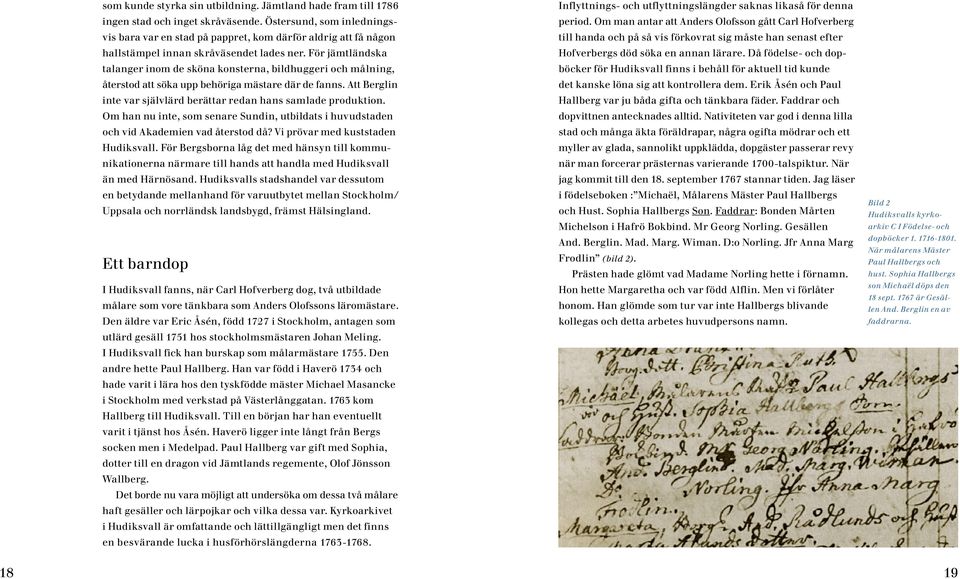 som kunde styrka sin utbildning. Jämtland hade fram till 1786
ingen stad och inget skråväsende. Östersund, som inlednings-
vis bara var en stad på pappret, kom därför aldrig att få någon
hallstämpel innan skråväsendet lades ner. För jämtländska
talanger inom de sköna konsterna, bildhuggeri och målning,
återstod att söka upp behöriga mästare där de fanns. Att Berglin
inte var självlärd berättar redan hans samlade produktion.
Om han nu inte, som senare Sundin, utbildats i huvudstaden
och vid Akademien vad återstod då? Vi prövar med kuststaden
Hudiksvall. För Bergsborna låg det med hänsyn till kommu-
nikationerna närmare till hands att handla med Hudiksvall
än med Härnösand. Hudiksvalls stadshandel var dessutom
en betydande mellanhand för varuutbytet mellan Stockholm/
Uppsala och norrländsk landsbygd, främst Hälsingland.
Ett barndop
I Hudiksvall fanns, när Carl Hofverberg dog, två utbildade
målare som vore tänkbara som Anders Olofssons läromästare.
Den äldre var Eric Åsén, född 1727 i Stockholm, antagen som
utlärd gesäll 1751 hos stockholmsmästaren Johan Meling.
I Hudiksvall fick han burskap som målarmästare 1755. Den
andre hette Paul Hallberg. Han var född i Haverö 1734 och
hade varit i lära hos den tyskfödde mäster Michael Masancke
i Stockholm med verkstad på Västerlånggatan. 1763 kom
Hallberg till Hudiksvall. Till en början har han eventuellt
varit i tjänst hos Åsén. Haverö ligger inte långt från Bergs
socken men i Medelpad. Paul Hallberg var gift med Sophia,
dotter till en dragon vid Jämtlands regemente, Olof Jönsson
Wallberg.
Det borde nu vara möjligt att undersöka om dessa två målare
haft gesäller och lärpojkar och vilka dessa var. Kyrkoarkivet
i Hudiksvall är omfattande och lättillgängligt men det finns
en besvärande lucka i husförhörslängderna 1763-1768.
18
Inflyttnings- och utflyttningslängder saknas likaså för denna
period. Om man antar att Anders Olofsson gått Carl Hofverberg
till handa och på så vis förkovrat sig måste han senast efter
Hofverbergs död söka en annan lärare. Då födelse- och dop-
böcker för Hudiksvall finns i behåll för aktuell tid kunde
det kanske löna sig att kontrollera dem. Erik Åsén och Paul
Hallberg var ju båda gifta och tänkbara fäder. Faddrar och
dopvittnen antecknades alltid. Nativiteten var god i denna lilla
stad och många äkta föräldrapar, några ogifta mödrar och ett
myller av glada, sannolikt uppklädda, dopgäster passerar revy
när man forcerar prästernas varierande 1700-talspiktur. När
jag kommit till den 18. september 1767 stannar tiden. Jag läser
i födelseboken :”Michaël, Målarens Mäster Paul Hallbergs
och Hust. Sophia Hallbergs Son. Faddrar: Bonden Mårten
Michelson i Hafrö Bokbind. Mr Georg Norling. Gesällen
And. Berglin. Mad. Marg. Wiman. D:o Norling. Jfr Anna Marg
Frodlin” (bild 2).
Prästen hade glömt vad Madame Norling hette i förnamn.
Hon hette Margaretha och var född Alflin. Men vi förlåter
honom. Han glömde som tur var inte Hallbergs blivande
kollegas och detta arbetes huvudpersons namn.
Bild 2
Hudiksvalls kyrko-
arkiv C I Födelse- och
dopböcker 1. 1716-1801.
När målarens Mäster
Paul Hallbergs och
hust. Sophia Hallbergs
son Michaël döps den
18 sept. 1767 är Gesäl-
len And. Berglin en av
faddrarna.
Ruth.
Michaël, Målarens Mäster Paul Hallbergs
och Hust. Sophia Hallbergs Son.
Faddrar: Bonden Mårten Michelson i Hafrö
Bokbind. Mr Georg Norling. Gesällen
And. Berglin. Mad. Marg. Wiman.
D:o Norling.
Margareta,
19